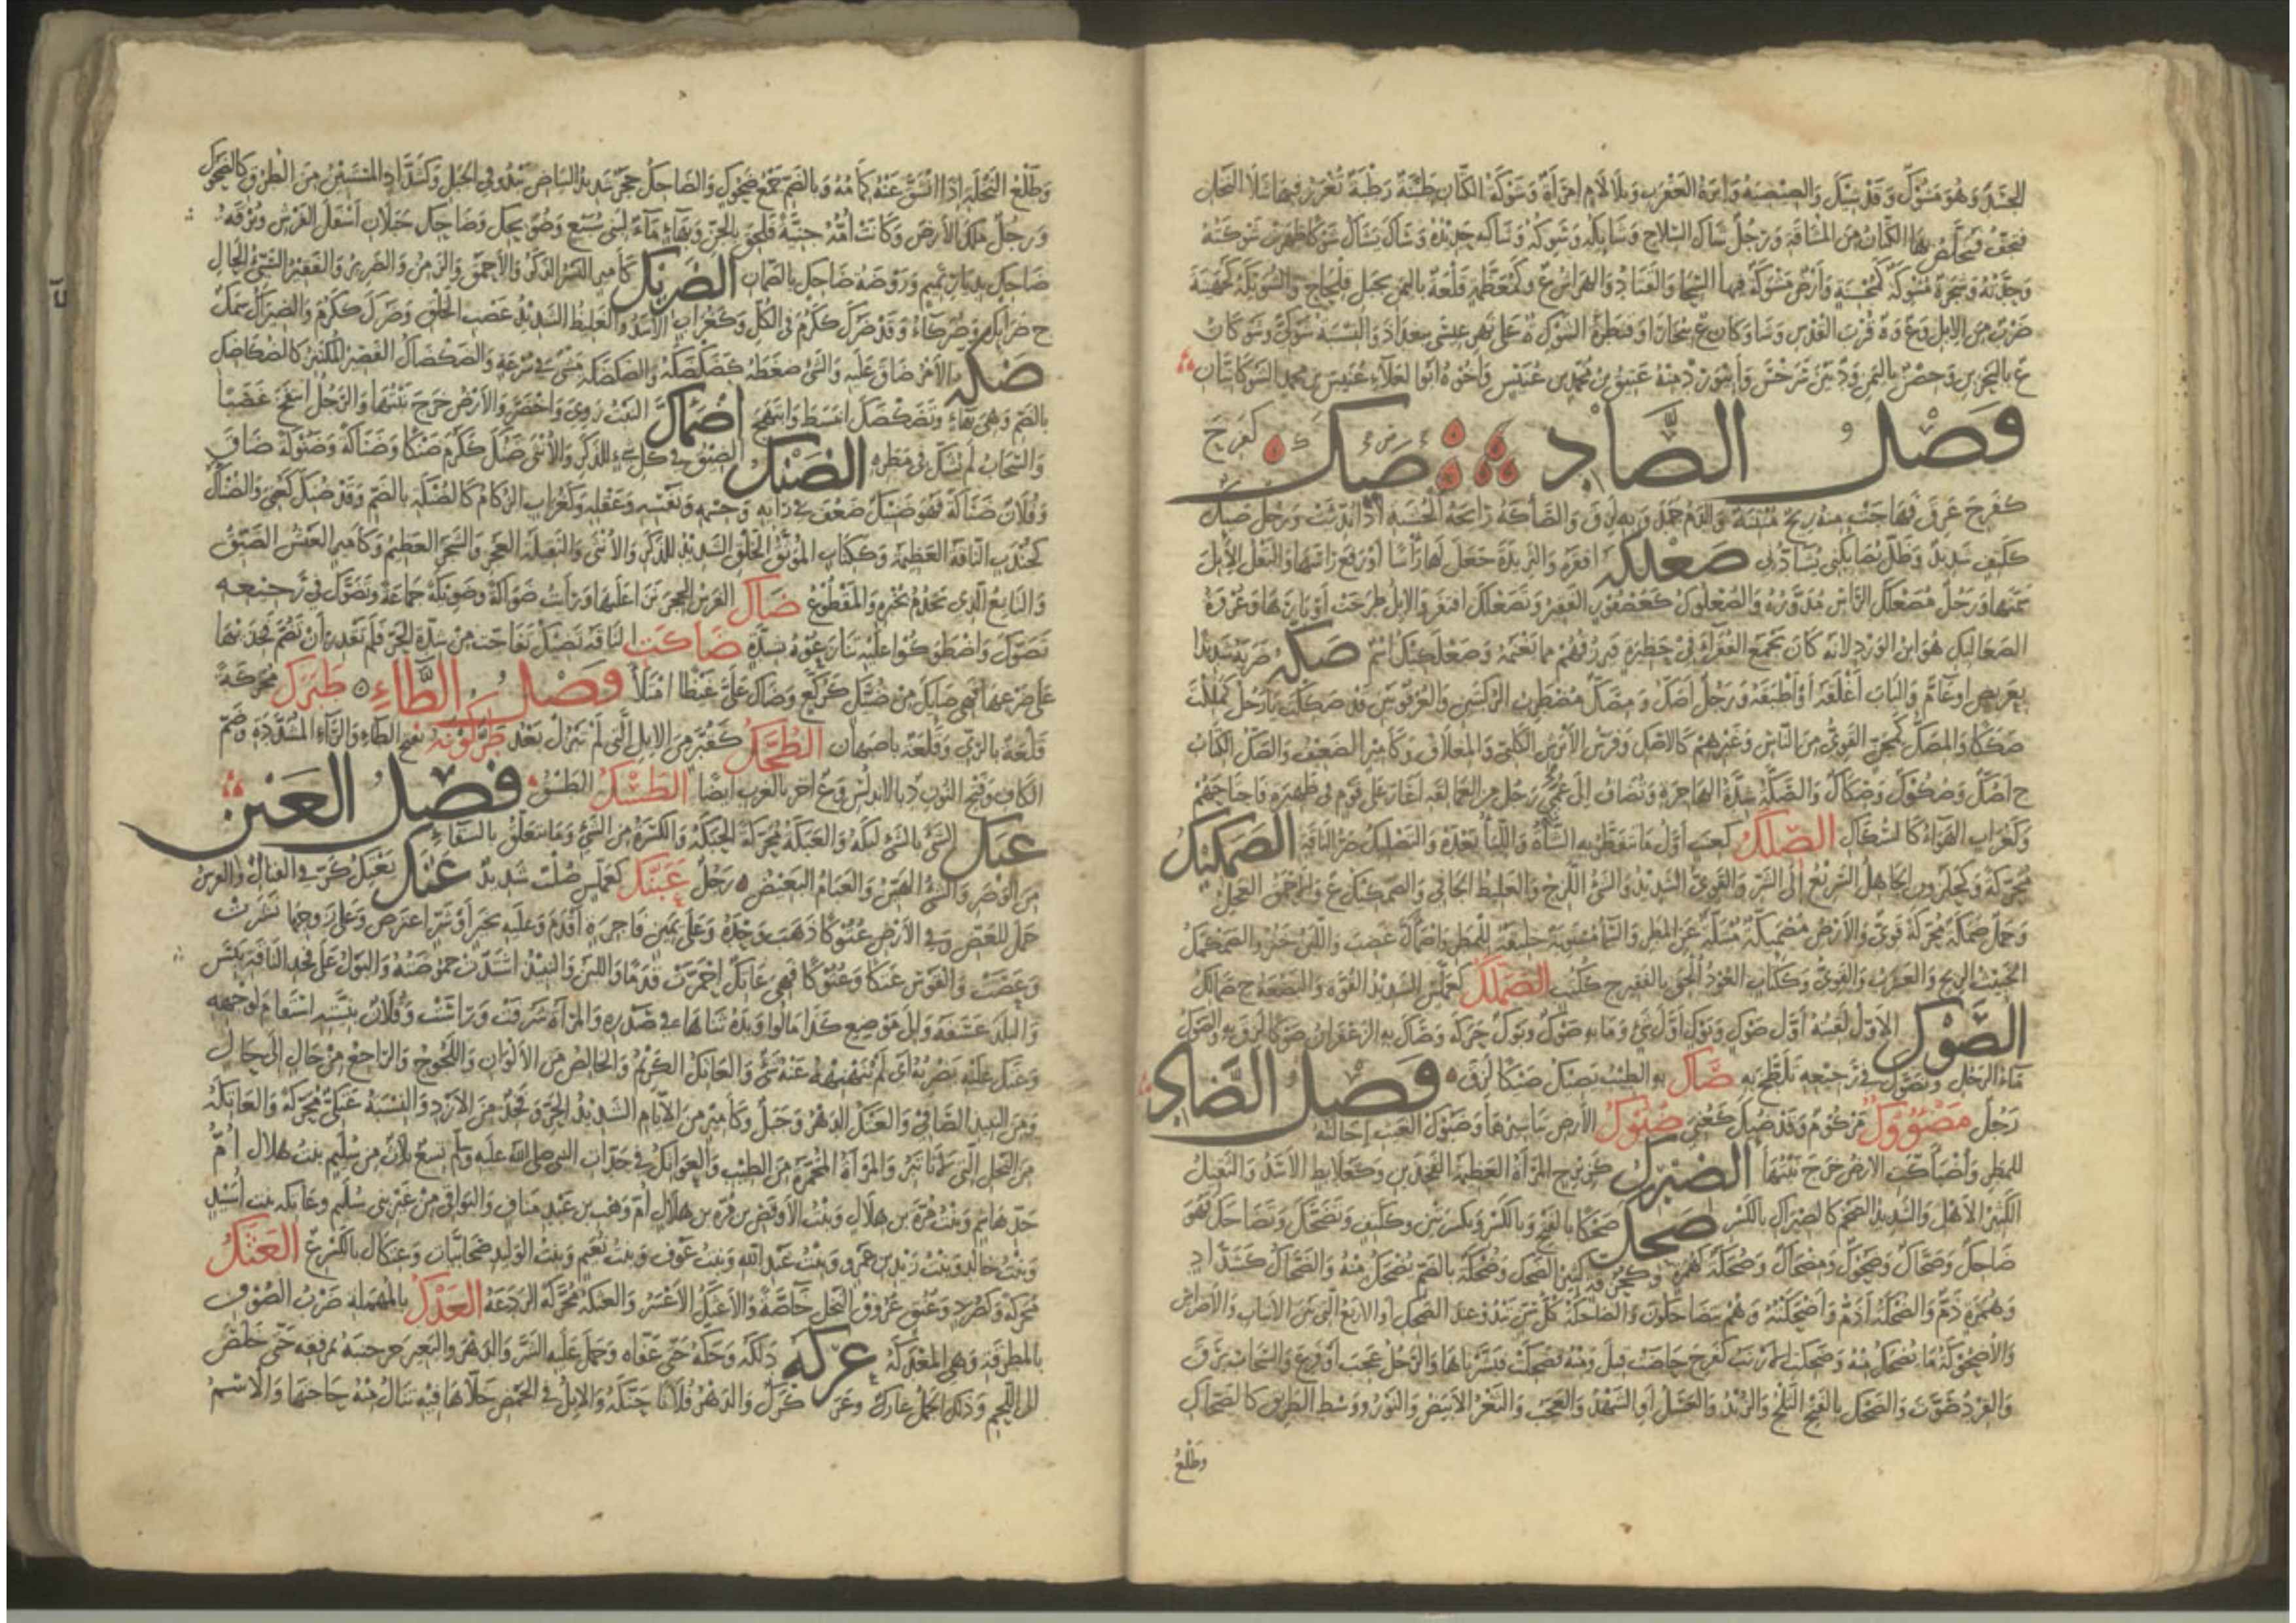 الجسد وهو مشوك وقد شيك والصيصية وابرة العقرب وبلا لام امرأة وشوكة الكتان طينة رطبة تغرز فيها سلاء النخل
فتجف فيخلص بها الكتان من المشاقة ورجل شاك السلاح وشايكه وشوكه وشاكيه حديده وشاك يشاك شوكا ظهرت شوكته
وحدته وشجرة مشوكة كمحسنة وأرض مشوكة فيها السحا والقتاد والهراس ع وكمعظمة قلعة باليمن بجبل قلحاح والشويكة كجهينة
ضرب من الابل و ع و ة قرب القدس وشاوكان ع ببخارا وقنطرة الشوك ة على نهر عيسى ببغداد والنسبة شوكي وشوكان
ع بالبحرين وحصن باليمن و د بين سرخس وأبيورد منه عتيق بن محمد بن عنيس وأخوه أبو العلاء عنيس بن محمد الشوكانيان
فصل الصاد صئك
كفرح عرق فهاجت منه ريح منتنة والدم جمد وبه لزق والصأكة رائحة الخشبة اذا نديت ورجل صئك
ككتف شديد وظل يصايكني يشادني صعلكه افقره والثريدة جعل لها رأسا أو رفع رأسها والبقل الابل
سمنها ورجل مصعلك الرأس مدوره والصعلوك كعصفور الفقير وتصعلك افتقر والابل طرحت أوبارها وعروة
الصعاليك هو ابن الورد لانه كان يجمع الفقراء في حظيرة فيرزقهم مما يغنمه وصعلكيك اسم صكه ضربه شديدا
بعريض أو عام والباب أغلقه أو أطبقه ورجل أصك ومصك مضطرب الركبتين والعرقوبين وقد صككت يا رجل كمللت
صككا والمصك كمجن القوي من الناس وغيرهم كالأصك وفرس الأبرش الكلبي والمغلاق وكأمير الضعيف والصك الكتاب
ج أصك وصكوك وصكاك والصكة شدة الهاجرة وتضاف الى عمي رجل من العمالقة أغار على قوم في ظهيرة فاجتاحهم
وكغراب الهواء كالسكاك الصلك كعنب أول ما تفطر به الشاة واللبأ بعده والتصليك صر الناقة الصمكيك
محركة وكحلزون الجاهل السريع الى الشر والقوي الشديد والشئ اللزج والغليظ الجافي والصمكيك ع والاحمق العجل
وجمل صمكة محركة قوي والارض مصمئكة مبتلة عن المطر والسماء مستوية خليقة للمطر واصمأك غضب واللبن خثر والصمكمك
الخبيث الريح والعزب والقوي وككتاب العود الحق بالقفيز ج ككتب الصملك كعملس الشديد القوة والبضعة ج صمالك
الصوك الاول لقيته أول صوك وبوك أول شئ وما به صوك وبوك حركة وصاك به الزعفران صوكا لزق به والصوك
ماء الرجل وتصوك في رجيعه تلطخ به صاك به الطيب يصيك صيكا لزق فصل الضاد
رجل مضووك مزكوم وقد ضئك كعني ضبوك الارض تباشيرها وضبوك الغيث إخالته
للمطر وأضبأكت الارض خرج نبتها الضبرك كزبرج المرأة العظيمة الفخذين وكعلابط الاسد والثقيل
الكثير الاهل والشديد الضخم كالضبراك بالكسر ضحك ضحكا بالفتح وبالكسر وبكسرتين وككتف وتضحك وتضاحك فهو
ضاحك وضحاك وضحوك ومضحاك وضحكة كهمزة وكحزقة كثير الضحك وضحكة بالضم يضحك منه والضحاك كشداد
وهمزة ذم والضحكة أذم وأضحكته وهم يتضاحكون والضاحكة كل سن تبدو عند الضحك أو الاربع التي بين الانياب والاضراس
والاضحوكة ما يضحك منه وضحكت الارنب كفرح حاضت قيل ومنه فضحكت فبشرناها والرجل عجب أو فزع والسحاب برق
والقرد صوت والضحك بالفتح الثلج والزبد والعسل أو الشهد والعجب والثغر الابيض والنور ووسط الطريق كالضحاك
وطلع
وطلع النخلة اذا انشق عنه كمامه وبالضم جمع ضحوك والضاحك حجر شديد البياض يبدو في الجبل وكشداد المستبين من الطرق كالضحوك
ورجل ملك الارض وكانت أمه جنية فلحق بالجن وبهاء ماء لبني سبيع وضويحك وضاحك جبلان أسفل الفرش وبرقة
ضاحك بديار تميم وروضة ضاحك بالصمان الضريك كأمير النسر الذكر والاحمق والزمن والضرير والفقير السيئ الحال
ج ضرائك وضركاء وقد ضرك ككرم في الكل وكغراب الاسد والغليظ الشديد عصب الخلق وضرك ككرم والضيراك سمك
ضكه الامر ضاق عليه والشئ ضغطه كضكضكه والضكضكة مشي في سرعة والضكضاك القصير المكتنز كالضكاضك
بالضم وهي بهاء وتضكضك انبسط وابتهج اضمأك النبت روي واخضر والارض خرج نبتها والرجل انتفخ غضبا
والسحاب لم نشك في مطره الضنك الضيق في كل شئ للذكر والانثى ضنك ككرم ضنكا وضناكة وضنوكة ضاق
وفلان ضناكة فهو ضنيك ضعف في رأيه وجسمه ونفسه وعقله وكغراب الزكام كالضنكة بالضم وقد ضنك كعني والضنأك
كجندب الناقة العظيمة وككتاب الموثق الخلق الشديد للذكر والانثى والثقيلة العجز والشجر العظيم وكأمير العيش الضيق
والتابع الذي يخدم بخبزه والمقطوع ضاك الفرس الحجر نزا عليها ورأيت ضواكة وضويكة جماعة وتضوك في رجيعه
تصوك واضطوكوا عليه تنازعوه بشدة ضاكت الناقة تضيك تفاجت من شدة الحر فلم تقدر أن تضم فخذيها
على ضرعها فهي ضايك من ضيك كركع وضاك علي غيظا امتلأ فصل الطاء طبرك محركة
قلعة بالري وقلعة باصبهان الطحك كقبر من الابل التي لم تبزل بعد طركونة بفتح الطاء والراء المشددة وضم
الكاف وفتح النون د بالاندلس و ع آخر بالغرب أيضا الطسك الطسق فصل العين
عبك الشئ بالشئ لبكه والعبكة محركة الحبكة والكسرة من الشئ وما يتعلق بالسقاء
من الوضر والشئ الهين والعبام البغيض رجل عبنك كعملس صلب شديد عتك يعتك كر في القتال والفرس
حمل للعض وفي الارض عتوكا ذهب وحده وعلى يمين فاجرة أقدم وعليه بخير أو شر اعترض وعلى زوجها نشزت
وعصت والقوس عتكا وعتوكا فهي عاتك احمرت قدما واللبن والنبيذ اشتدت حموضته والبول على فخذ الناقة يبس
والبلد عسفه والى موضع كذا مالوا ويده ثناها في صدره والمرأة شرفت ورأست وفلان بنيته استقام لوجهه
وعتك عليه يضربه أي لم ينهنهه عنه شئ والعاتك الكريم والخالص من الالوان واللجوج والراجع من حال الى حال
ومن النبيذ الصافي والعتك الدهر وجبل وكأمير من الايام الشديد الحر وفخذ من الازد والنسبة عتكي محركة والعاتكة
من النخل التي لا تأتبر والمرأة المحمرة من الطيب والعواتك في جدات النبي صلى الله عليه وسلم تسع ثلاث من سليم بنت هلال أم
جد هاشم وبنت مرة بن هلال وبنت الاوقص بن مرة بن هلال أم وهب بن عبد مناف والبواقي من غير بني سليم وعاتكة بنت أسيد
وبنت خالد وبنت زيد بن عمرو وبنت عبد الله وبنت عوف وبنت نعيم وبنت الوليد صحابيات وعتكان بالكسر ع العثك
محركة وكصرد وعنق عروق النخل خاصة والأعثك الاعسر والعثكة محركة الردغة العدك بالمهملة ضرب الصوف
بالمطرقة وهي المعدكة عركه دلكه وحكه حتى عفاه وحمل عليه الشر والدهر والبعير حز جنبه بمرفقه حتى خلص
الى اللحم وذلك الجمل عارك وعركرك والدهر فلانا حنكه والابل في الحمض خلاها فيه تنال منه حاجتها والاسم